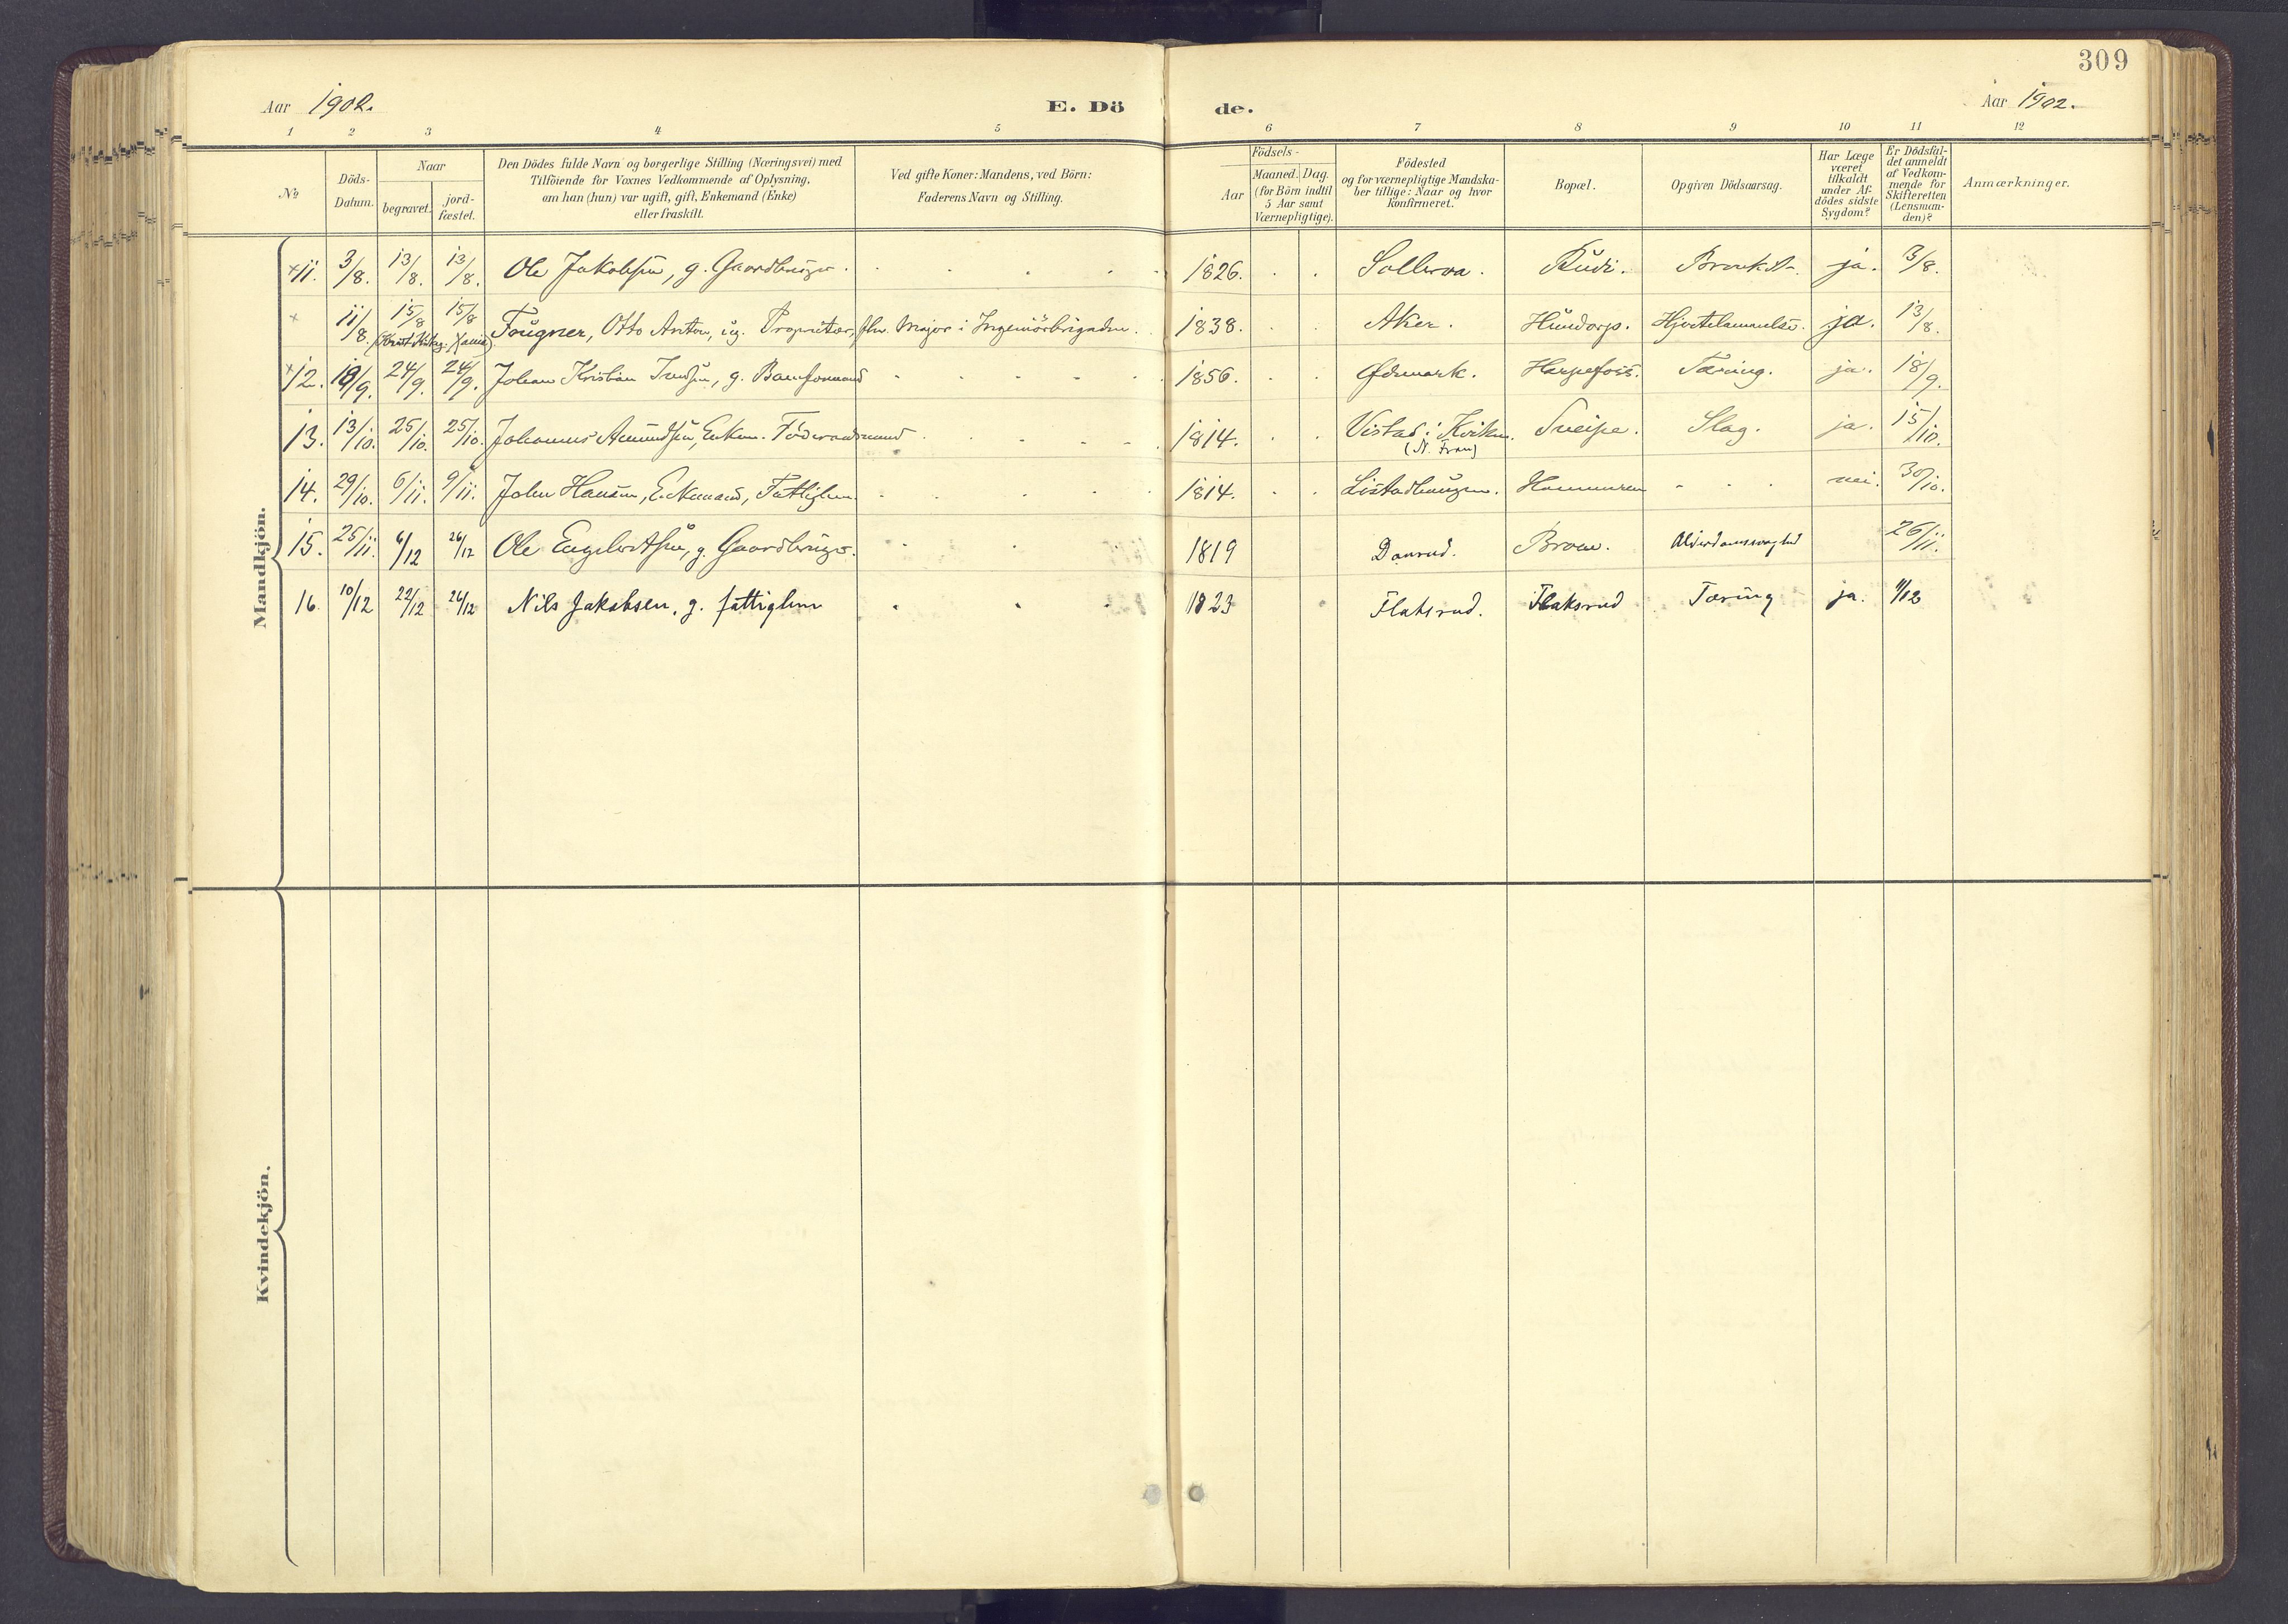 309
Aar 1902. E. Dö de. Aar 1902.
1 2 3 4 5 6 7 8 9 10 11 12
№
Döds-
Datum.
Naar
begravet.
jord-
fæstet.
Den Dödes fulde Navn og borgerlige Stilling (Næringsvei) med
Tilföiende for Voxnes Vedkommende af Oplysning,
om han (hun) var ugift, gift, Enkemand (Enke)
eller fraskilt.
Ved gifte Koner: Mandens, ved Börn:
Faderens Navn og Stilling.
Födsels-
Aar
Maaned. Dag.
(for Börn indtil
5 Aar samt
Værnepligtige).
Födested
og for værnepligtige Mandska-
ber tillige: Naar og hvor
konfirmeret.
Bopæl.
Opgiven Dödsaarsag.
Har Læge
været
tilkaldt
under Af-
dödes sidste
Sygdom?
Er Dödsfal-
det anmeldt
af Vedkom-
mende for
Skifteretten
(Lensman-
den)?
Anmærkninger.
Mandkjön.
×11. 3/8. 13/8. 13/8. Ole Jakobsen, g. Gaardbruger. 1826. Sollerva. Rudi. ja. 3/8.
× 11/8. 15/8 15/8 Fougner, Otto Anton, ug. Proprietær, fhv. Major i Ingeniörbrigaden. 1838. Aker. Hundorp. Hjertelammelse. ja. 13/8.
×12. 18/9. 24/9. 24/9. Johan Kristian g. Baneformand 1856. Ødemark. Harpefoss. Tæring. ja. 18/9.
13. 13/10. 25/10. 25/10. Johannes Amundsen, Enkem. Föderaadsmand 1814. Vistad i Kvikne. Sveipe. Slag. ja. 15/10.
(N. Fron)
14. 29/10. 6/11. 9/11. John Hansen, Enkemand, Fattiglem. 1814. Listadhaugen. nei. 30/10.
15. 25/11. 6/12 26/12 Ole Engebretsen, g. Gaardbruger. 1819 Alderdomssvaghed 26/11.
16. 10/12 22/12 26/12 Nils Jakobsen, g. fattiglem 1823 Flaksrud. Flaksrud Tæring ja. 11/12
Kvindekjön.